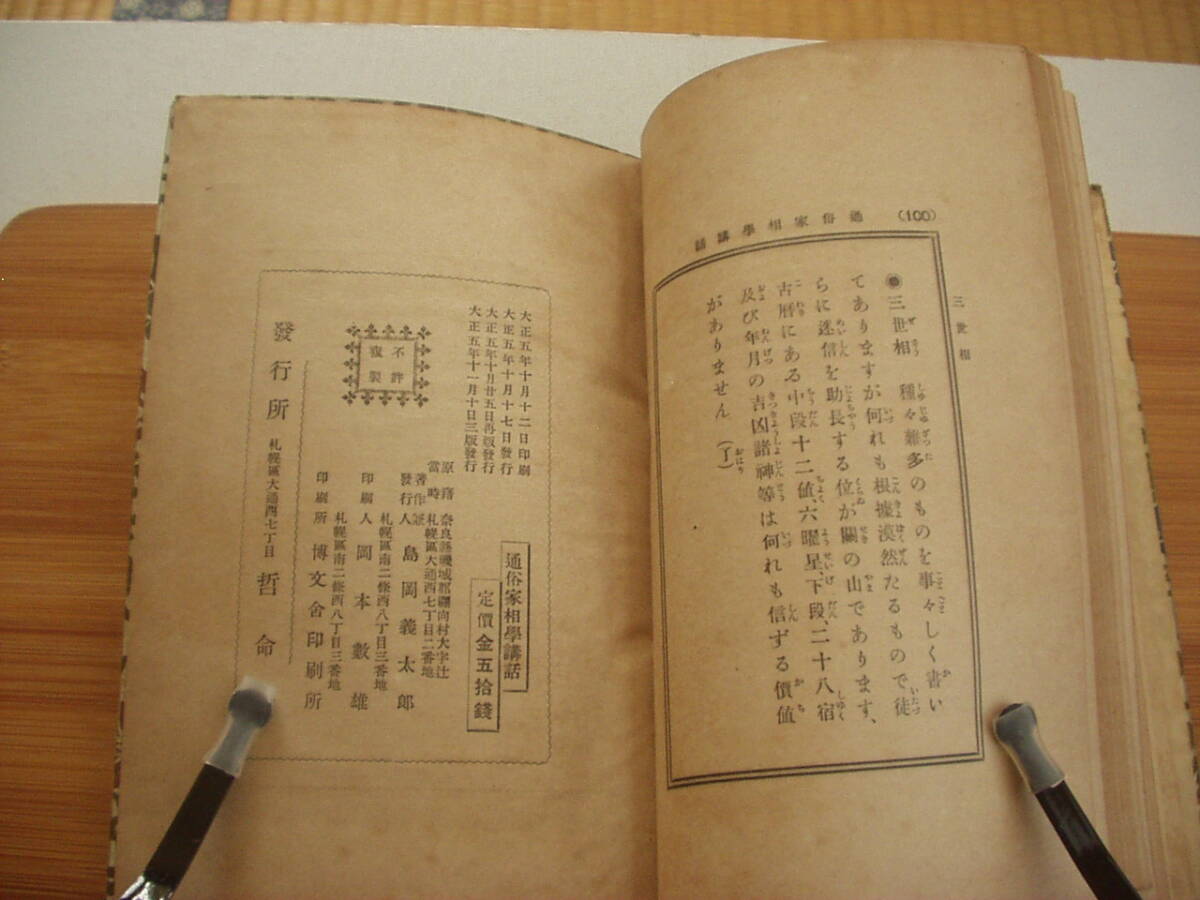 (100)
通俗家相學講話
三世相
●三世相 種々雜多のものを事々しく書い
てありますが何れも根據漠然たるもので徒
らに迷信を助長する位が關の山であります、
古暦にある中段十二値、六曜星、下段、二十八宿
及び年月の吉凶諸神等は何れも信ずる價値
がありません (了)
通俗家相學講話
定價金五拾錢
大正五年十月十二日印刷
大正五年十月十七日發行
大正五年十月廿五日再版發行
大正五年十一月十日三版發行
不許
複製
原籍 奈良縣磯城郡纒向村大字辻
當時 札幌區大通西七丁目二番地
著作兼
發行人 島岡義太郎
札幌區南二條西八丁目三番地
印刷人 岡本數雄
札幌區南二條西八丁目三番地
印刷所 博文舍印刷所
發行所 札幌區大通西七丁目 哲命